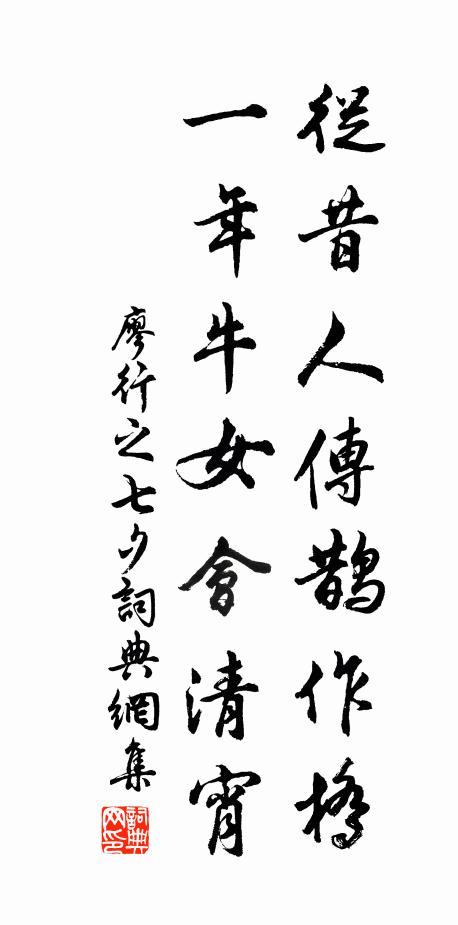 從昔人傳鵲作橋
一年牛女會清宵
廖行之七夕詞典網集
詞典网印